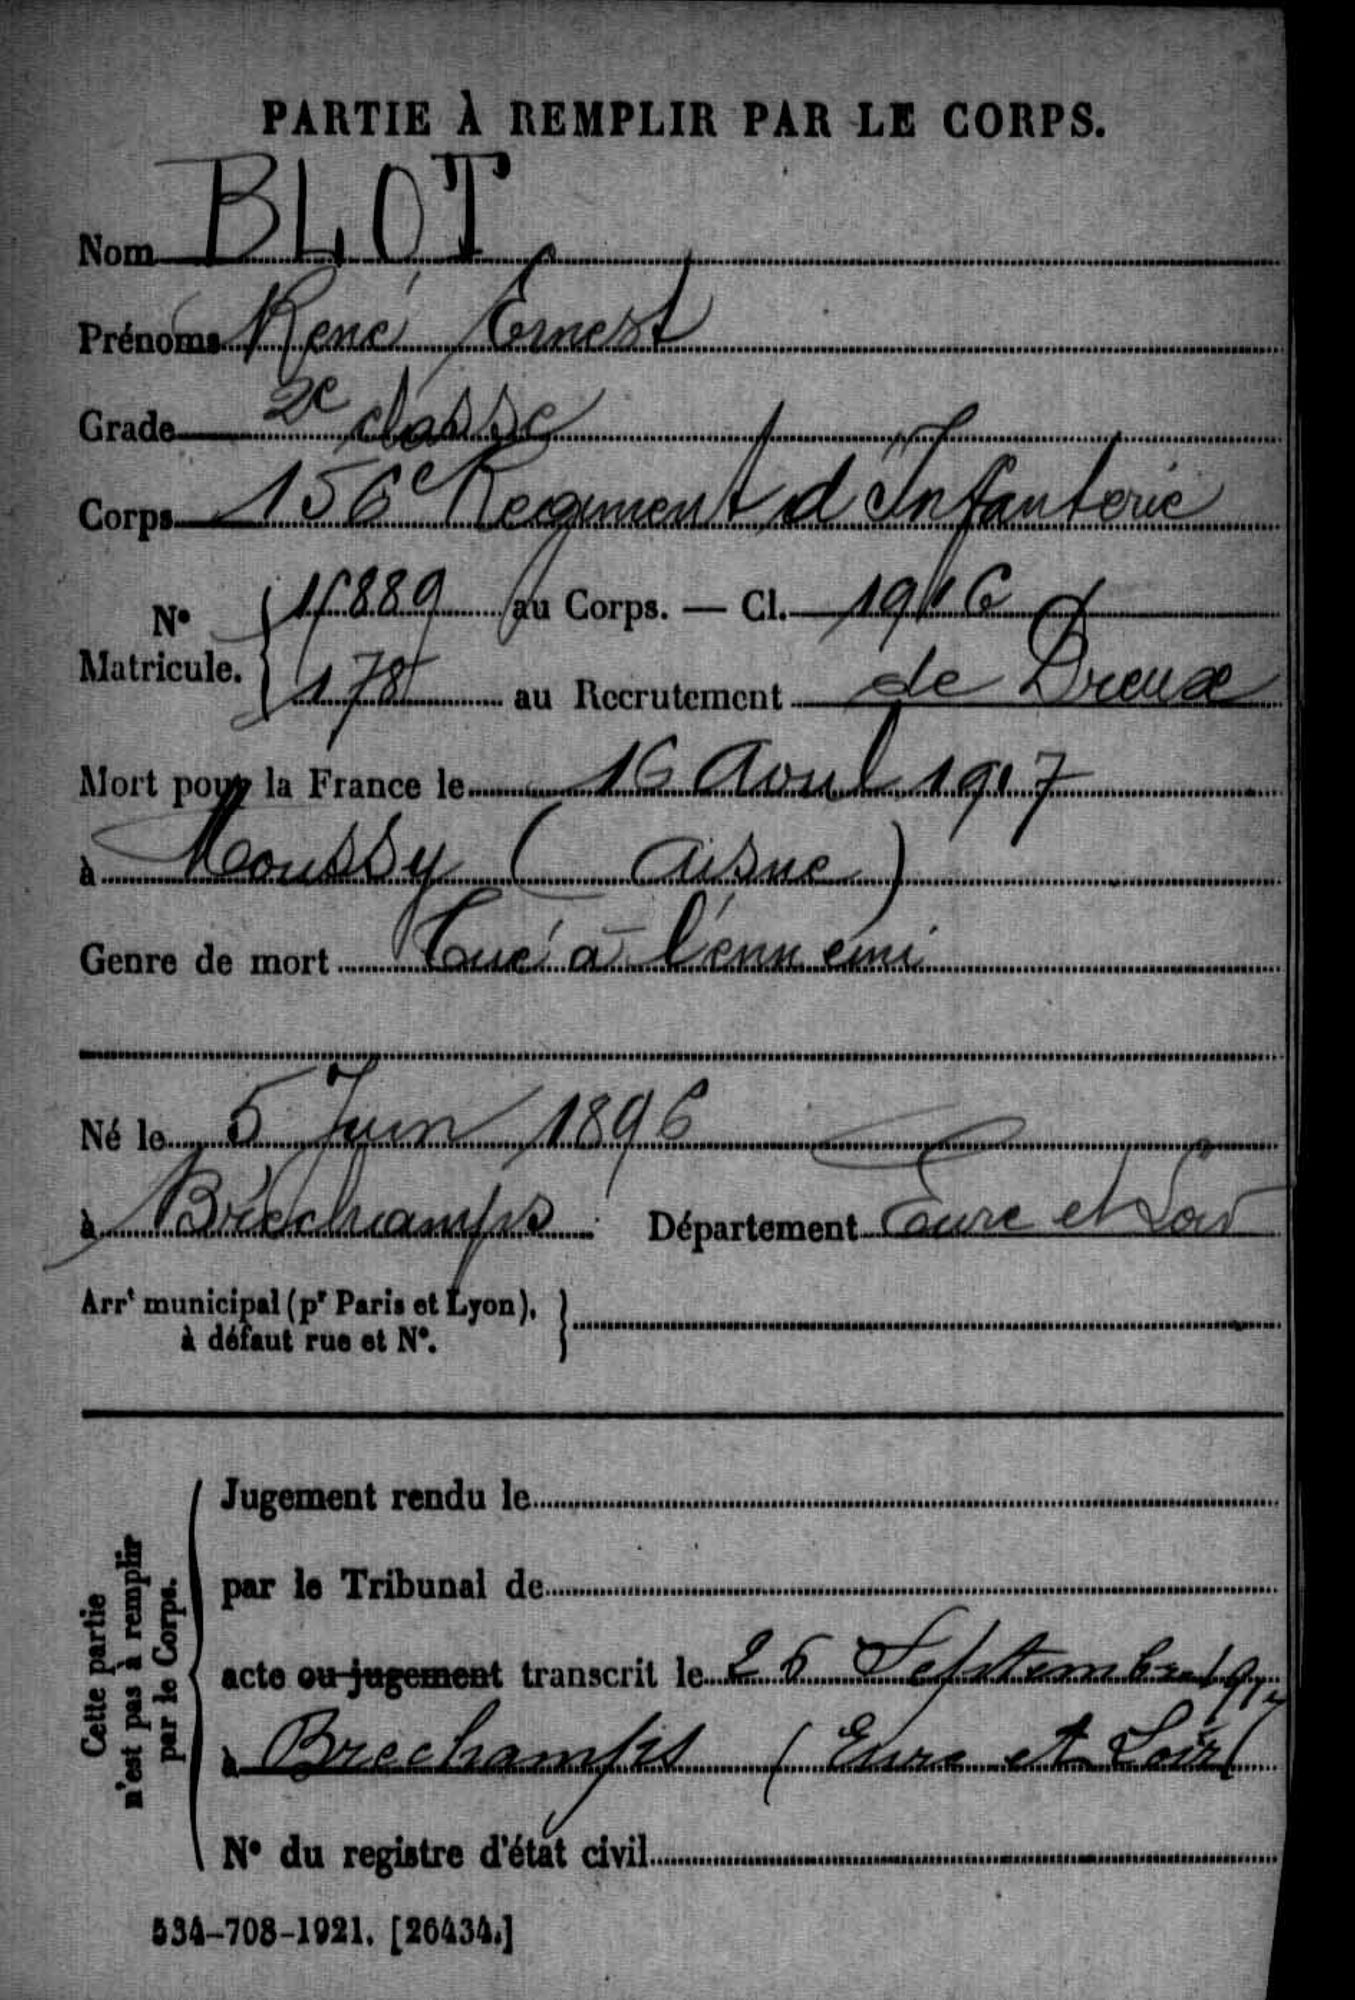 PARTIE À REMPLIR PAR LE CORPS.
Nom BLOT
Prénoms René Ernest
Grade 2e classe
Corps 156e Regiment d'Infanterie
N° Matricule. { 11889 au Corps. — Cl. 1916
178 au Recrutement de Dreux
Mort pour la France le 16 Avril 1917
à Moussy (Aisne)
Genre de mort Tué à l'ennemi
Né le 5 Juin 1896
à Bréchamps Département Eure et Loir
Arrt municipal (pr Paris et Lyon), }
à défaut rue et N°.
Cette partie
n'est pas à remplir
par le Corps.
Jugement rendu le
par le Tribunal de
acte ou jugement transcrit le 26 Septembre 1917
à Brechamps (Eure et Loir(
N° du registre d'état civil
534-708-1921. [26434.]